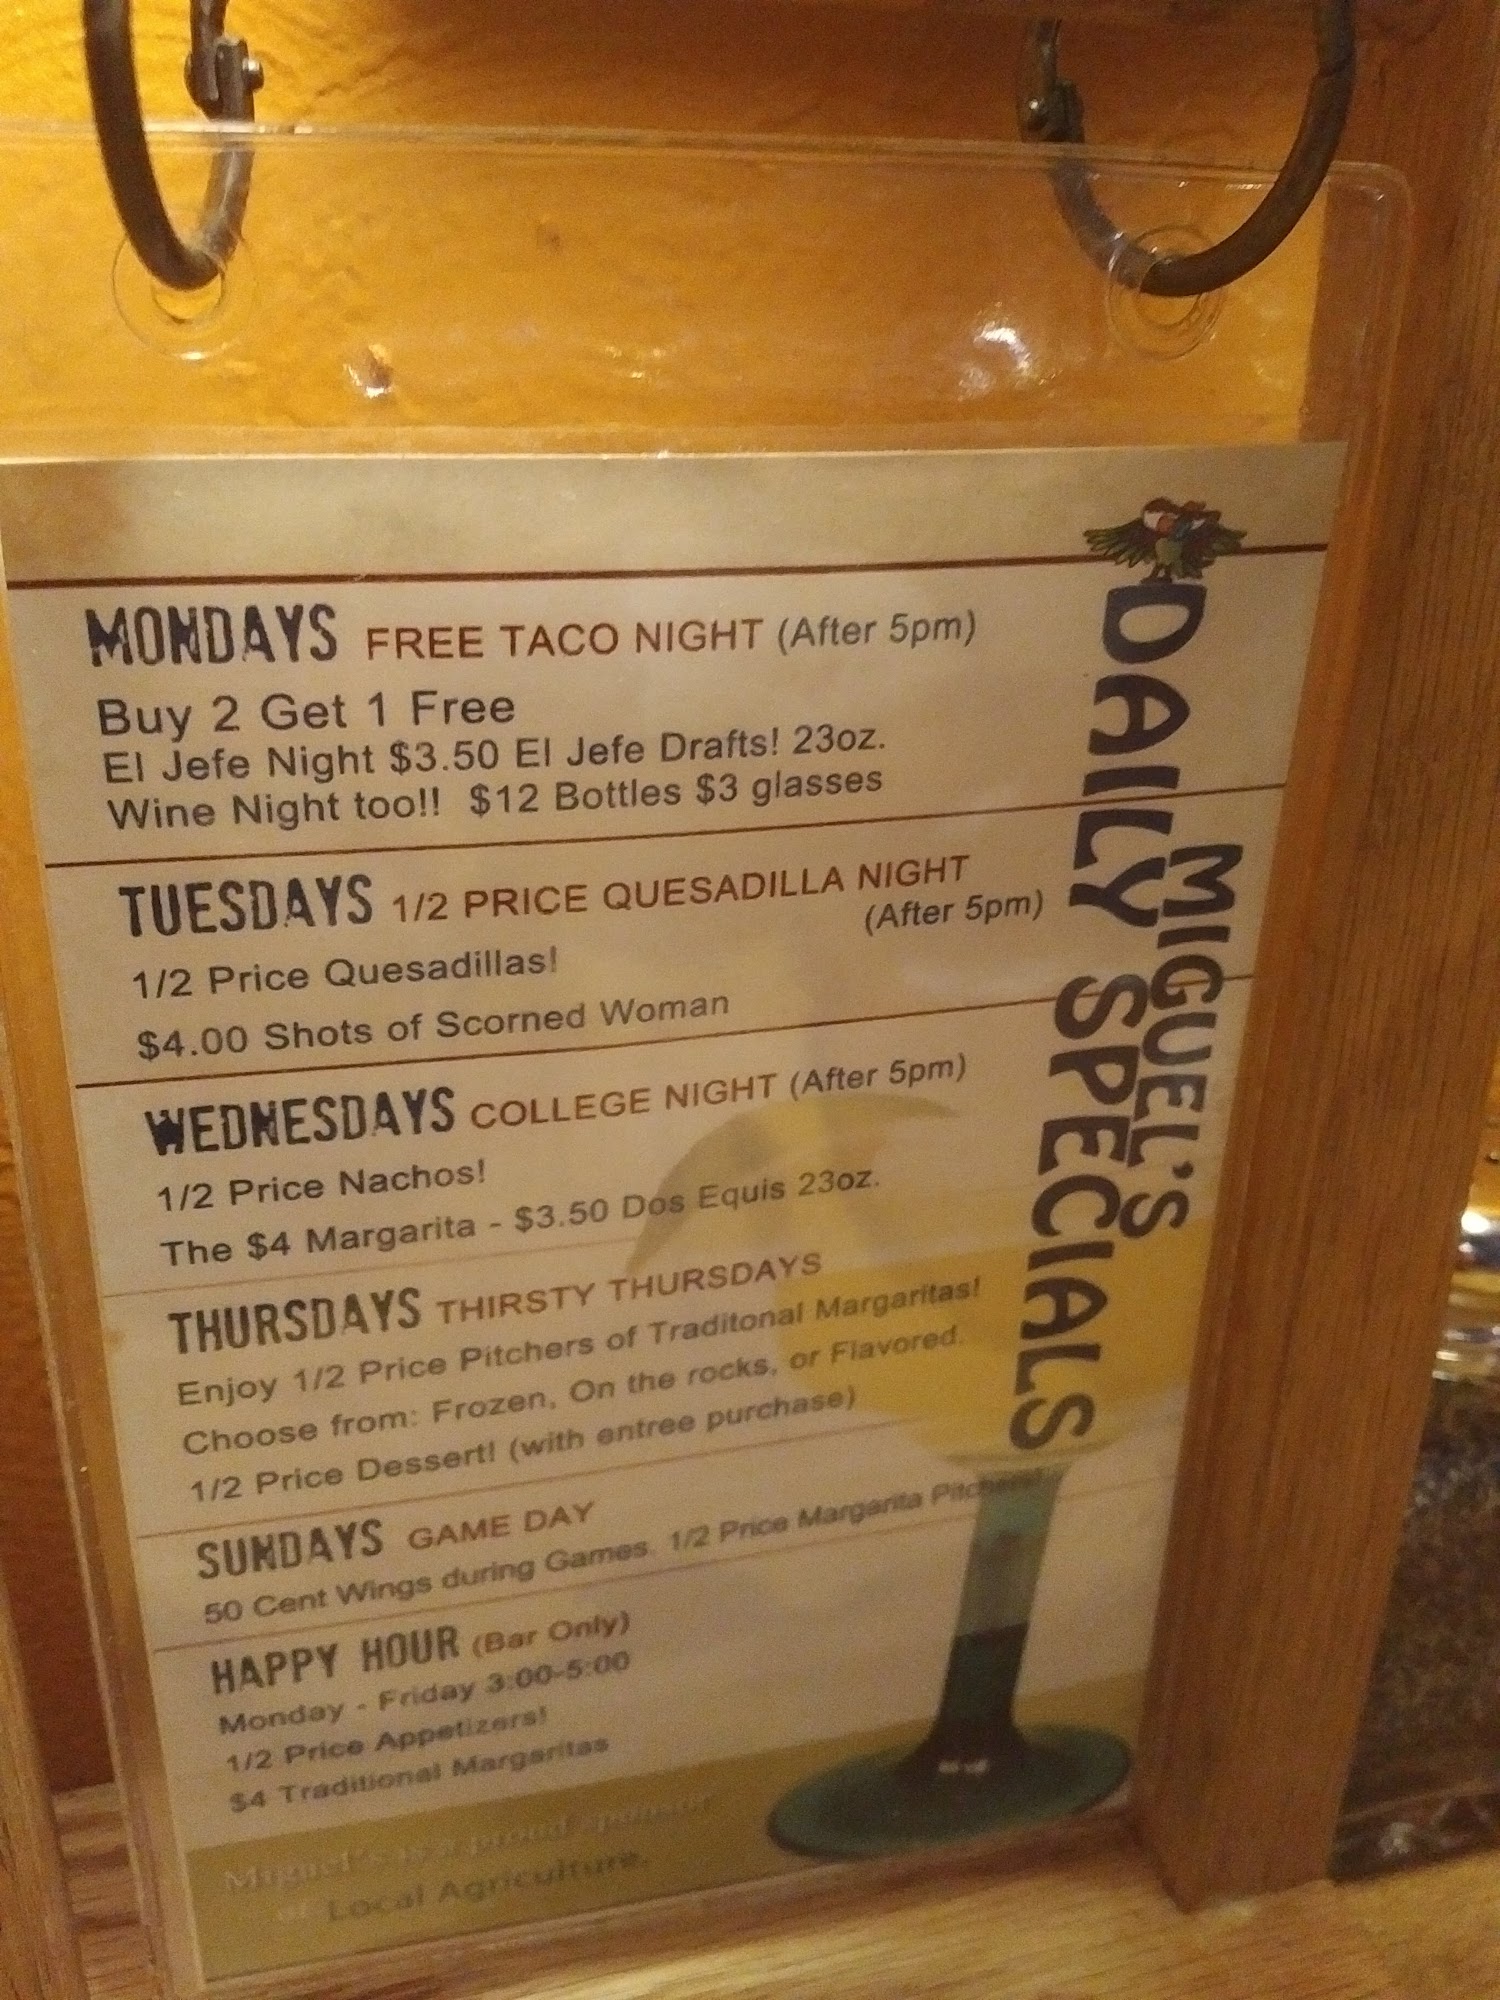 MIGUEL'S
DAILY SPECIALS
MONDAYS FREE TACO NIGHT (After 5pm)
Buy 2 Get 1 Free
El Jefe Night $3.50 El Jefe Drafts! 23oz.
Wine Night too!! $12 Bottles $3 glasses
TUESDAYS 1/2 PRICE QUESADILLA NIGHT
(After 5pm)
1/2 Price Quesadillas!
$4.00 Shots of Scorned Woman
WEDNESDAYS COLLEGE NIGHT (After 5pm)
1/2 Price Nachos!
The $4 Margarita - $3.50 Dos Equis 23oz.
THURSDAYS THIRSTY THURSDAYS
Enjoy 1/2 Price Pitchers of Traditonal Margaritas!
Choose from: Frozen, On the rocks, or Flavored.
1/2 Price Dessert! (with entree purchase)
SUNDAYS GAME DAY
50 Cent Wings during Games. 1/2 Price Margarita Pitchers!
HAPPY HOUR (Bar Only)
Monday - Friday 3:00-5:00
1/2 Price Appetizers!
$4 Traditional Margaritas
Miguel's is a proud sponsor
of Local Agriculture.